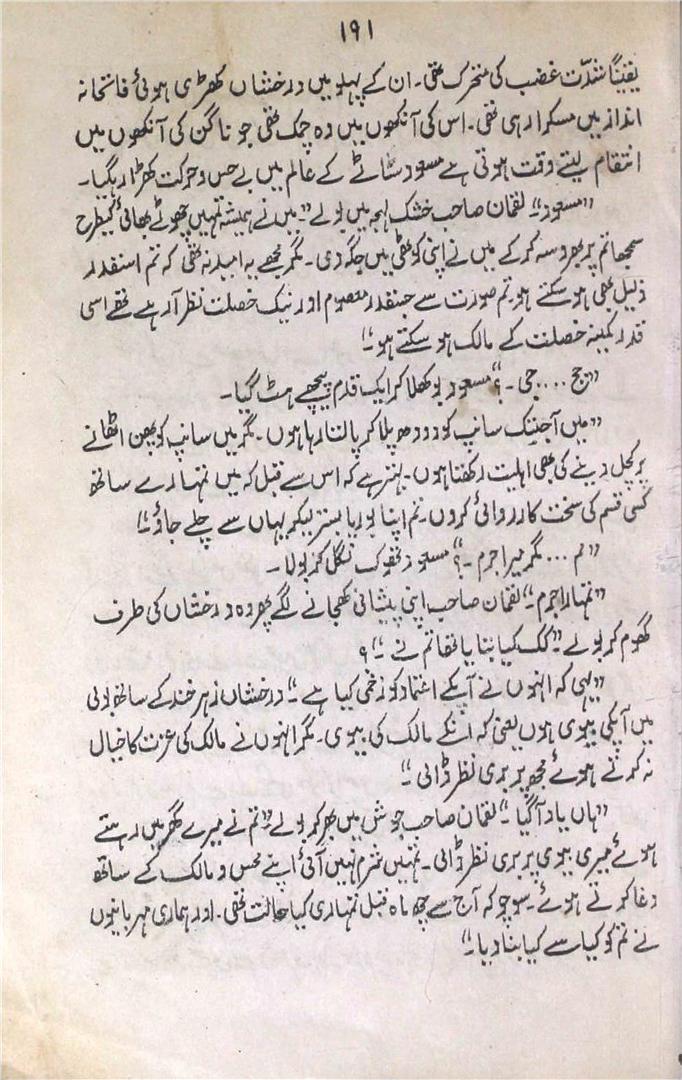 ۱۹۱
یقیناً شدّت غضب کی متحرک تھی۔ ان کے پہلو میں درخشاں کھڑی ہوئی فاتحانہ
انداز میں مسکرا رہی تھی۔ اس کی آنکھوں میں وہ چمک تھی جو ناگن کی آنکھوں میں
انتقام لیتے وقت ہوتی ہے مسعود سناٹے کے عالم میں بے حس و حرکت کھڑا رہ گیا۔
"مسعود"۔ لقمان صاحب خشک لہجہ میں بولے "میں نے ہمیشہ تمہیں چھوٹے بھائی کیطرح
سمجھا تم پر بھروسہ کر کے میں نے اپنی کوٹھی میں جگہ دی۔ مگر مجھے یہ امید نہ تھی کہ تم اسقدر
ذلیل بھی ہو سکتے ہو۔ تم صورت سے جتنقدر معصوم اور نیک خصلت نظر آ رہے تھے اسی
قدر کمینہ خصلت کے مالک ہو سکتے ہو۔"!
"جج .... جی۔؟" مسعود بوکھلا کر ایک قدم پیچھے ہٹ گیا۔
"میں آجتک سانپ کو دودھ پلا کر پالتا رہا ہوں۔ مگر میں سانپ کو پھن اٹھانے
پر کچل دینے کی بھی اہلیت رکھتا ہوں۔ بہتر ہے کہ اس سے قبل کہ میں تمہارے ساتھ
کسی قسم کی سخت کارروائی کروں۔ تم اپنا بوریا بستر لیکر یہاں سے چلے جاؤ۔"!
"مم ... مگر میرا جرم۔؟" مسعود تھوک نگل کر بولا۔
"تمہارا جرم۔" لقمان صاحب اپنی پیشانی کھجانے لگے پھر وہ درخشاں کی طرف
گھوم کر بولے "کک کیا بتایا تھا تم نے۔"؟
"یہی کہ انہوں نے آپکے اعتماد کو زخمی کیا ہے۔" درخشاں زہر خند کے ساتھ بولی
میں آپکی بیوی ہوں یعنی کہ انکے مالک کی بیوی۔ مگر انہوں نے مالک کی عزت کا خیال
نہ کرتے ہوئے مجھ پر بری نظر ڈالی۔"
"ہاں یاد آگیا۔" لقمان صاحب جوش میں بھر کر بولے "تم نے میرے گھر میں رہتے
ہوئے میری بیوی پر بری نظر ڈالی۔ تمہیں شرم نہیں آئی اپنے محسن و مالک کے ساتھ
دغا کرتے ہوئے۔ سوچو کہ آج سے چھ ماہ قبل تمہاری کیا حالت تھی۔ اور ہماری مہربانیوں
نے تم کو کیا سے کیا بنا دیا۔"